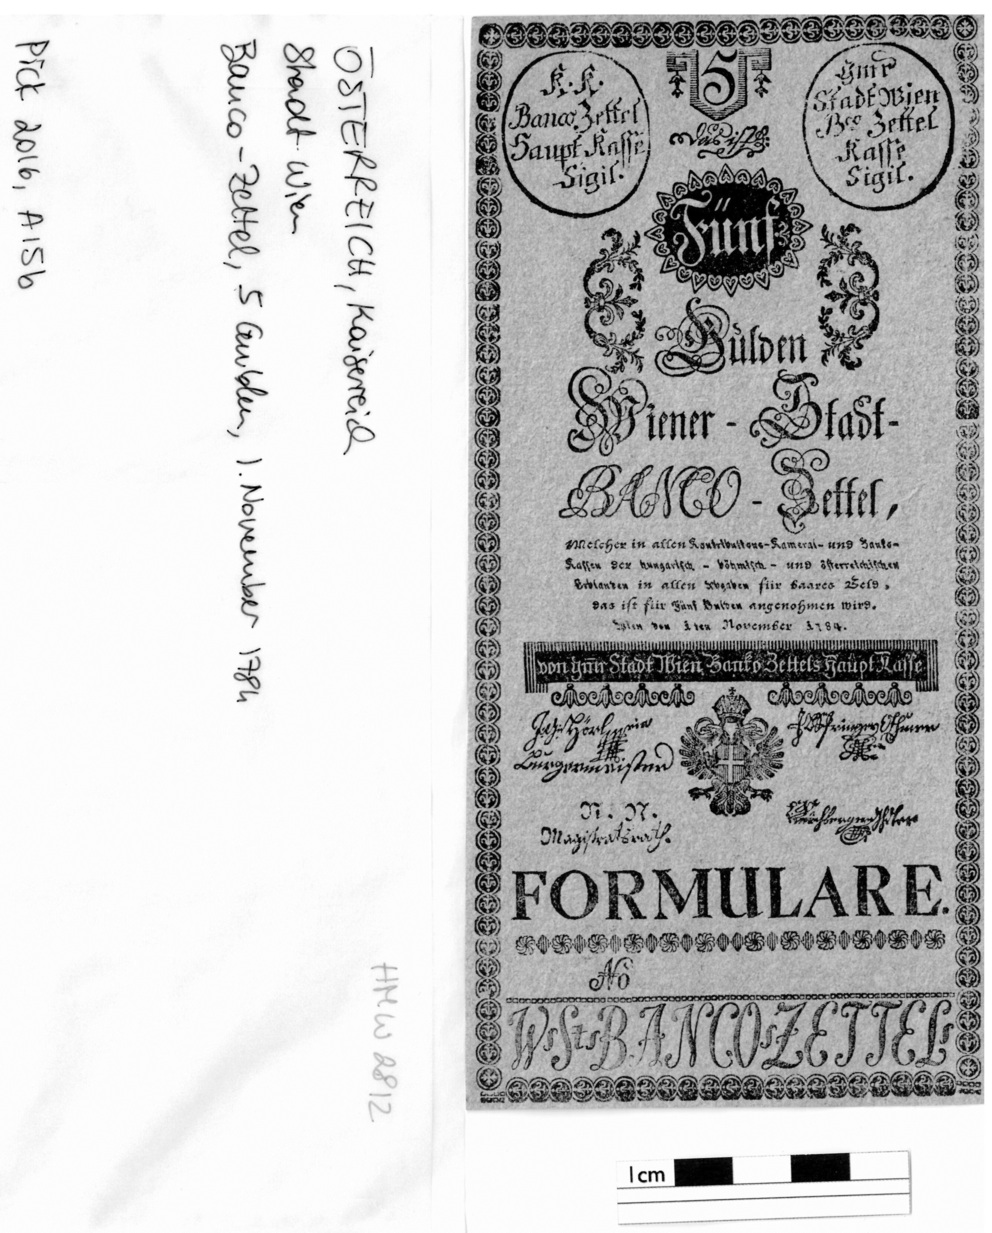 ÖSTERREICH, Kaiserreich
Stadt Wien
Banco-Zettel, 5 Gulden, 1. November 1784
Pick 2016, A15b
HMW 2812
K. K.
Banco Zettel
Haupt Kasse
Sigil.
5
das ist
Fünf
Gulden
Wiener - Stadt-
BANCO - Zettel,
Welcher in allen Kontributions-Kameral- und Banko-
Kassen der hungarisch - böhmisch - und österreichischen
Erblanden in allen Abgaben für baares Geld,
das ist für Fünf Gulden angenohmen wird.
Wien den 1ten November 1784.
Stadt Wien
Bco Zettel
Kasse
Sigil.
von Stadt Wien Banko Zettels Haupt Kasse
Burgermeister
N. N.
Magistratsrath.
FORMULARE.
No
W St BANCO ZETTEL
1cm